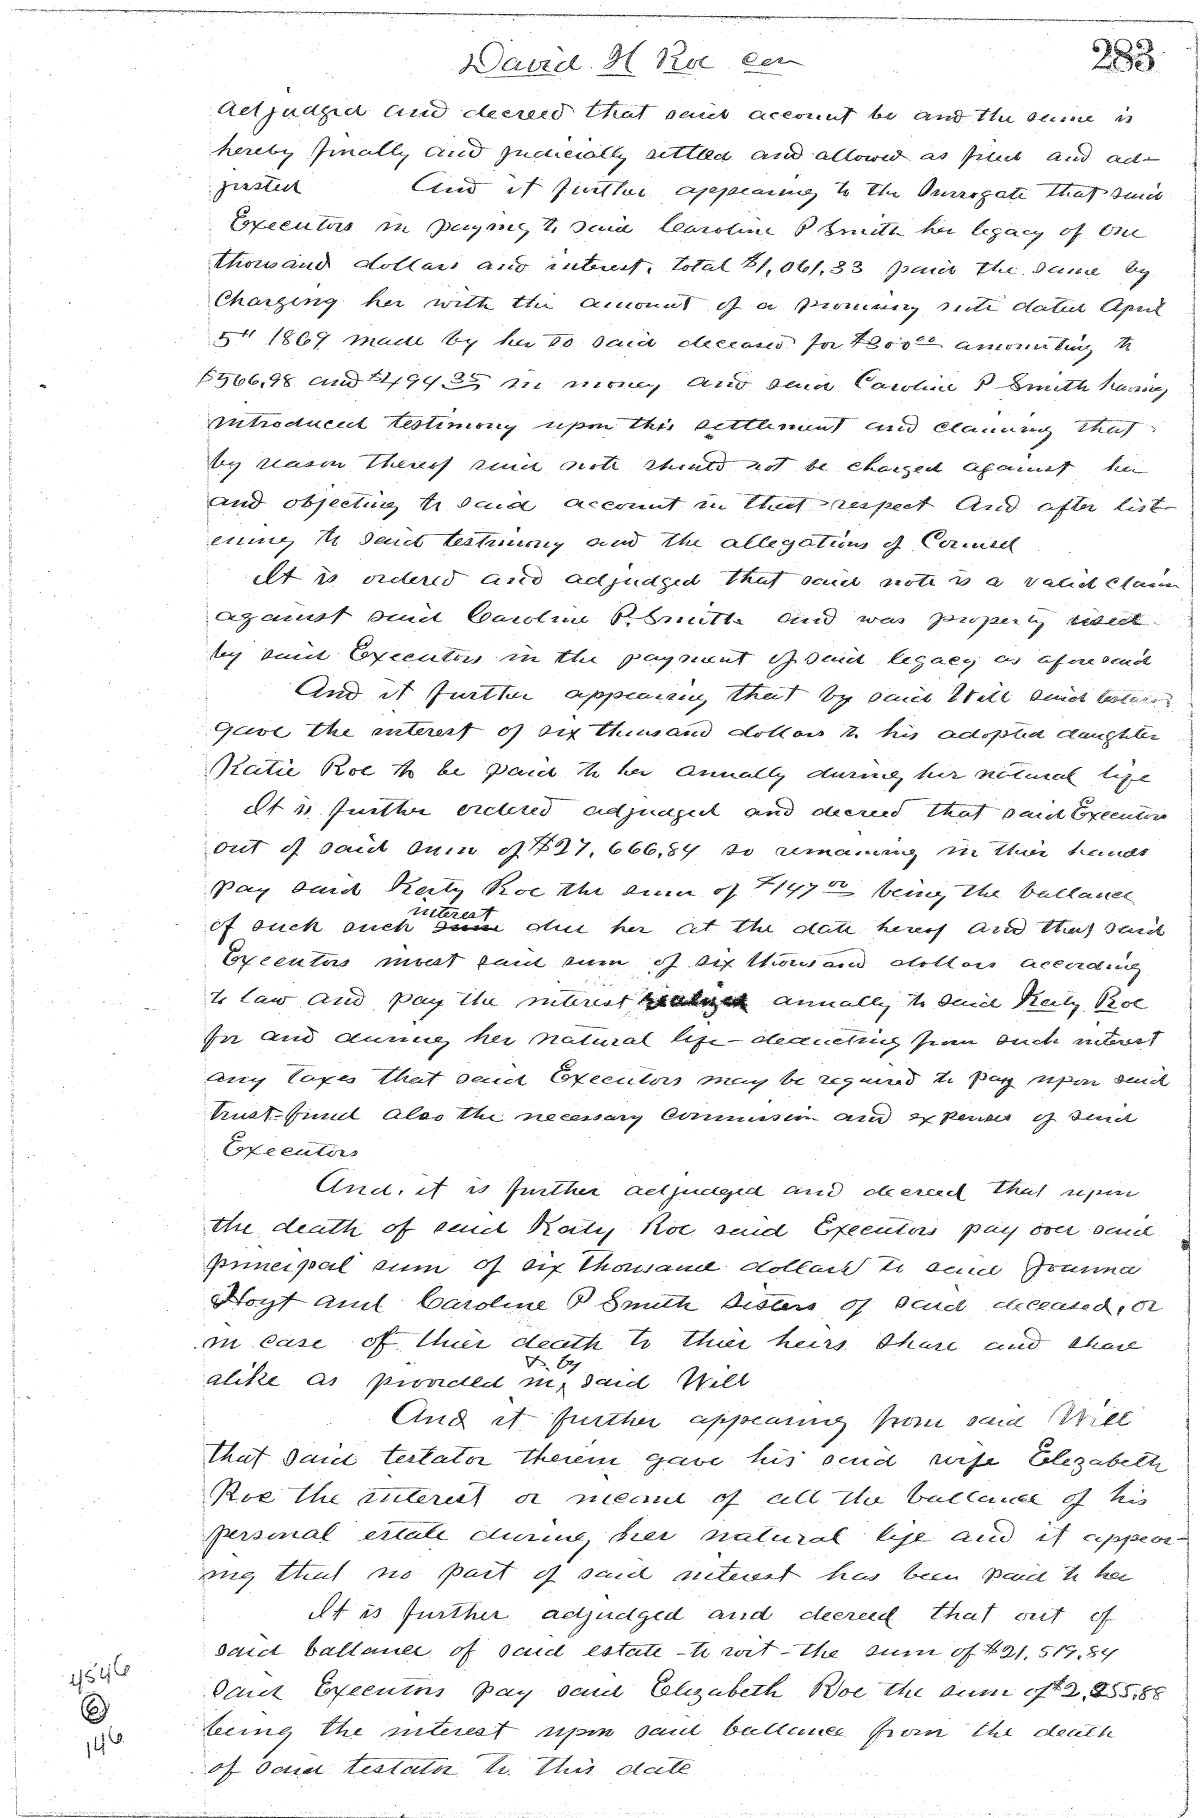 David H Roe con
283
adjudged and decreed that said account be and the same is
hereby finally and judicially settled and allowed as filed and ad-
justed And it further appearing to the Surrogate that said
Executors in paying to said Caroline P Smith her legacy of one
thousand dollars and interest, total $1,061,33 paid the same by
Charging her with the amount of a promissory note dated April
5" 1869 made by her to said deceased for $300 00 amounting to
$566,98 and $494 35 in money and said Caroline P Smith having
introduced testimony upon this settlement and claiming that
by reason thereof said note should not be charged against her
and objecting to said account in that respect And after list-
ening to said testimony and the allegations of Counsel
It is ordered and adjudged that said note is a valid claim
against said Caroline P. Smith and was properly used
by said Executors in the payment of said legacy as aforesaid
And it further appearing that by said Will said testator
gave the interest of six thousand dollars to his adopted daughter
Katie Roe to be paid to her annually during her natural life
It is further ordered adjudged and decreed that said Executors
out of said sum of $27,666,84 so remaining in thier hands
pay said Katy Roe the sum of $147 00 being the ballance
of such such interest due her at the date hereof and that said
Executors invest said sum of six thousand dollars according
to law and pay the interest annually to said Katy Roe
for and during her natural life - deducting from such interest
any taxes that said Executors may be required to pay upon said
trust-fund also the necessary commission and expenses of said
Executors
And, it is further adjudged and decreed that upon
the death of said Katy Roe said Executors pay over said
principal sum of six thousand dollars to said Joanna
Hoyt and Caroline P Smith sisters of said deceased, or
in case of thier death to thier heirs share and share
alike as provided in & by said Will
And it further appearing from said Will
that said testator therein gave his said wife Elizabeth
Roe the interest or income of all the ballance of his
personal estate during her natural life and it appear-
ing that no part of said interest has been paid to her
It is further adjudged and decreed that out of
said ballance of said estate - to wit - the sum of $21,519,84
said Executors pay said Elizabeth Roe the sum of $2,255,88
being the interest upon said ballance from the death
of said testator to this date
4546
6
146